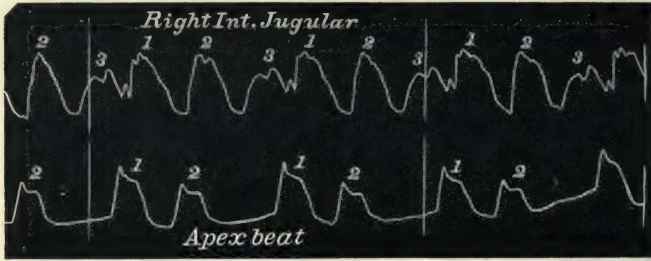 Right Int. Jugular
2 3 1 2 3 1 2 3 1 2 3
2 1 2 1 2 1 2
Apex beat